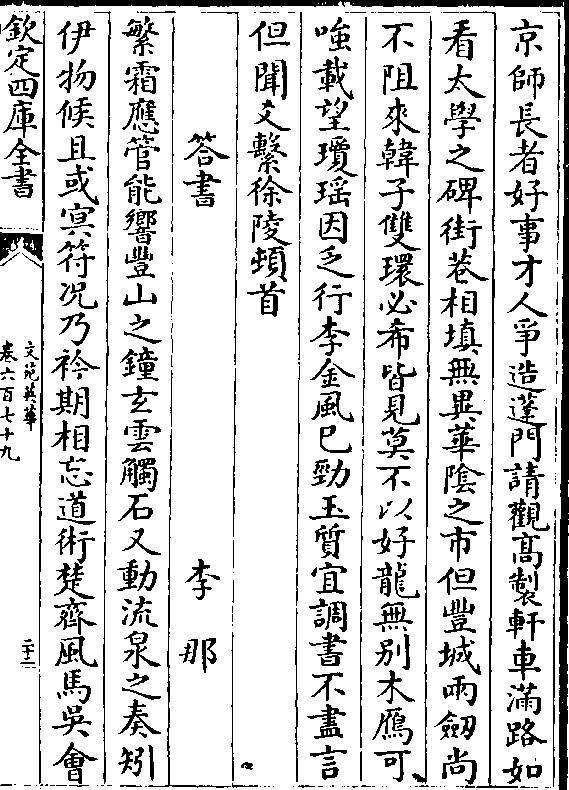 京師長者好事才人爭造蓬門請觀髙製軒車滿路如
看太學之碑街巷相填無異華陰之市但豐城兩劒尚
不阻來韓子雙環必希皆見莫不以好龍無别木鴈可
嗤載望瓊瑶因乏行李金風已勁玉質宜調書不盡言
但聞爻繫徐陵頓首
答書 李那
繁霜應管能響豐山之鐘玄雲觸石又動流泉之奏矧
伊物候且或㝠符况乃衿期相忘道術楚齊風馬吳會
欽定四庫全書
文苑英華
卷六百七十九
二十二